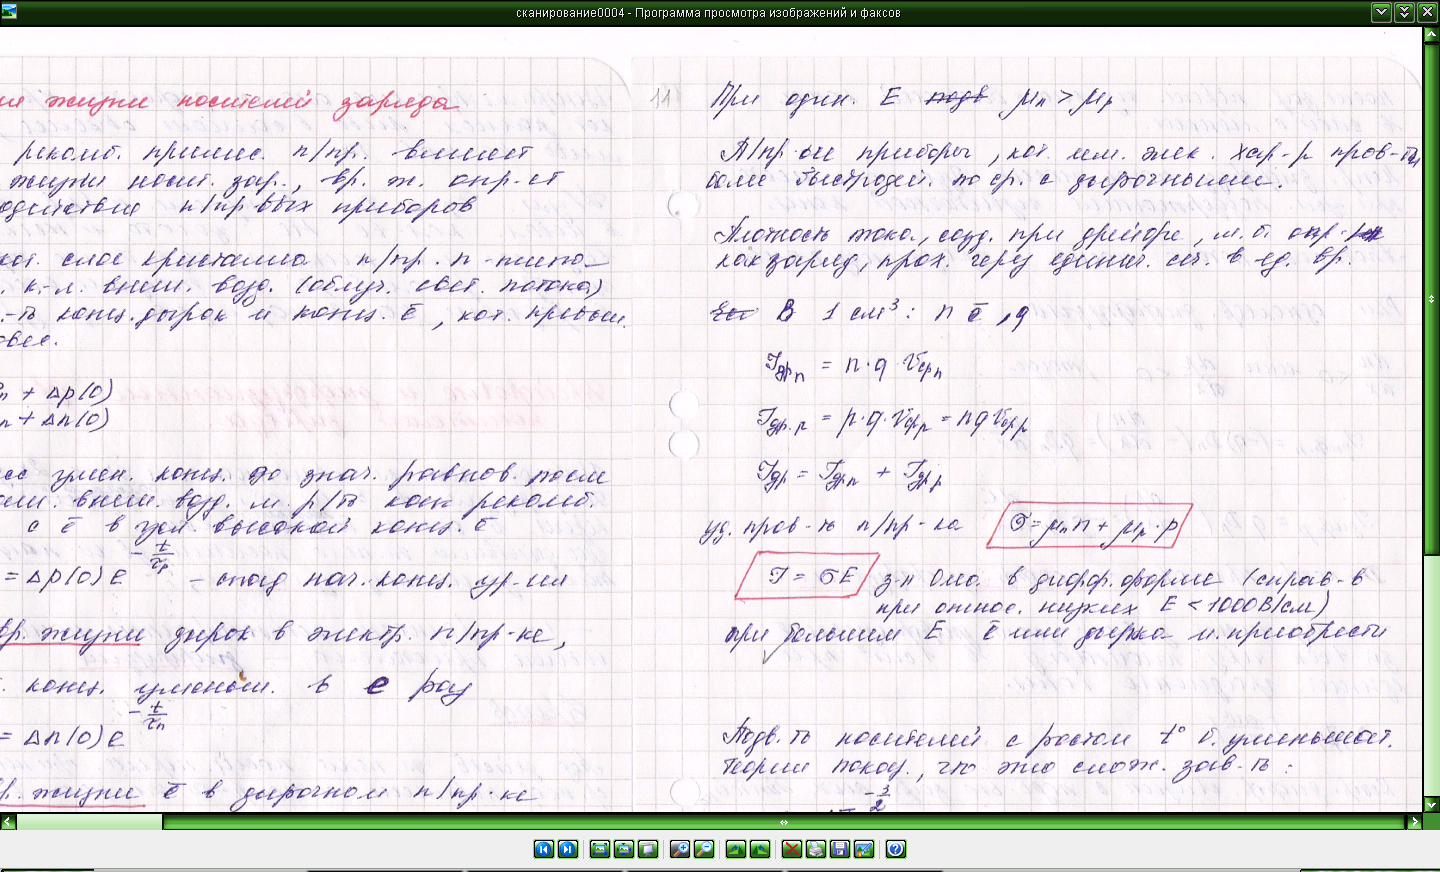 сканирование0004 - Программа просмотра изображений и факсов
жизни носителей заряда
рекомб. примес. п/пр. влияет
жизни носит. зар., вр. ж. опр-ет
п/пр-вых приборов
слое кристалла п/пр. n-типа
к.-л. внеш. возд. (облуч. свет. потока)
конц. дырок и конц. ē, кот. превыш.
+ Δp(0)
+ Δn(0)
умен. конц. до знач. равнов. после
внеш. возд. м. р/ть как рекомб.
с ē в усл. высокой конц. ē
= Δp(0) e^(-t/τp) – спад нач. конц. ур-ия
вр. жизни дырок в электр. п/пр-ке,
конц. уменьш. в e раз
= Δn(0) e^(-t/τn)
вр. жизни ē в дырочном п/пр-ке
11
При один. E подв μn > μp
П/пр-ые приборы, кот. им. элек. хар-р пров-ти
более быстродей. по ср. с дырочными.
Плотность тока, созд. при дрейфе, м.б. опр-
как заряд, прох. через единич. сеч. в ед. вр.
В 1 см³: n ē, q
Jдр n = n·q·Vср n
Jдр. p = p·q·Vср p = nqVср p
Jдр = Jдр n + Jдр p
уд. пров-ть п/пр-ка σ = μn n + μp·p
J = σE з-н Ома в дифф. форме (справ-в
при относ. низких E < 1000 В/см)
при большем E ē или дырка м. приобрести
Подв-ть носителей с ростом t° б. уменьшат.
Теория показ., что это слож. зав-ть:
-3/2